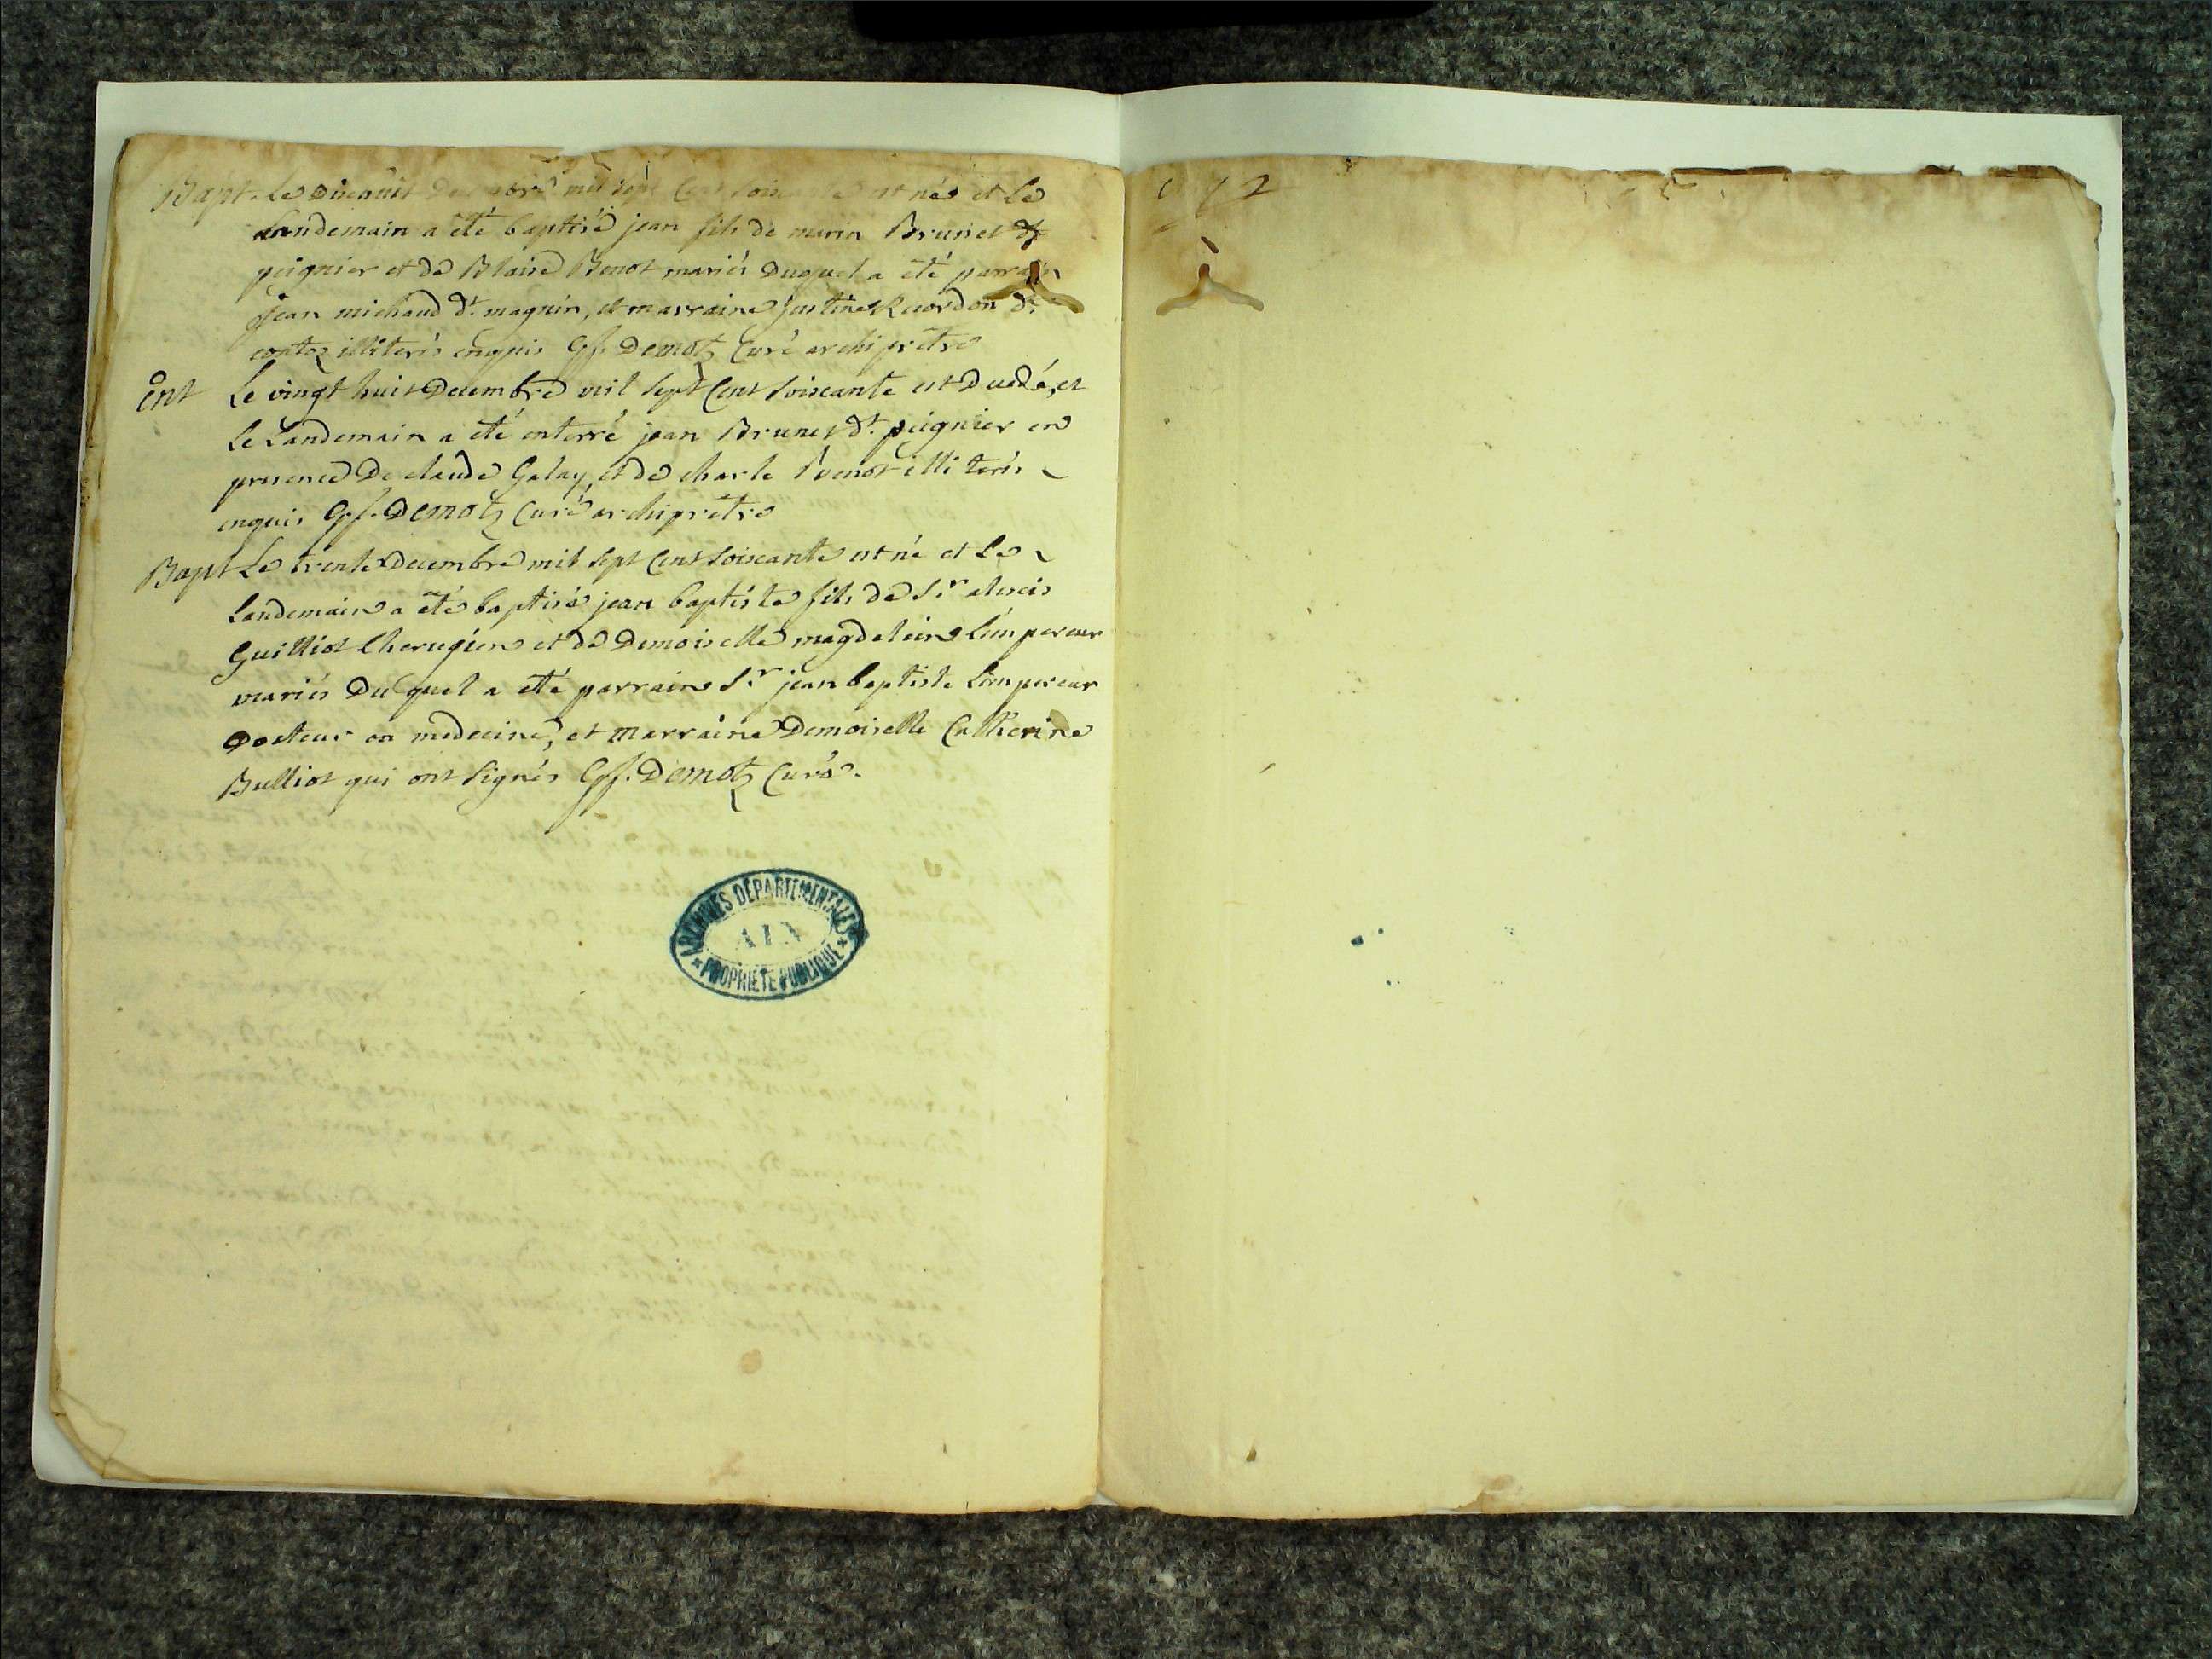 Bapt. Le dixhuit Decembre mil sept Cent soixante est né et Le
Landemain a été baptisé jean fils de marin Brunet dt
peignier et de Blaise Benot mariés Duquel a été parrain
jean michaud dt. magnin, et marraine justine Ruordon dt.
illiterés enquis Gf. Demotz Curé archiprêtre
Ent Le vingt huit Decembre mil sept Cent soixante est Decedé, et
Le Landemain a été enterré jean Brunet dt. peignier en
presence De claude Galay, et de charle Benot illiterés
enquis Gf. Demotz Curé archiprêtre
Bapt Le trente Decembre mil sept Cent soixante est né et Le
Landemain a été baptisé jean baptiste fils de Sr. alexis
Guilliot Cherugien et de Demoiselle magdeleine Lempereur
mariés Du quel a été parrain Sr. jean baptiste Lempereur
Docteur en medecine, et marraine Demoiselle Catherine
Bulliot qui ont signés Gf. Demotz Curé.
ARCHIVES DÉPARTEMENTALES
AIN
* PROPRIÉTÉ PUBLIQUE *